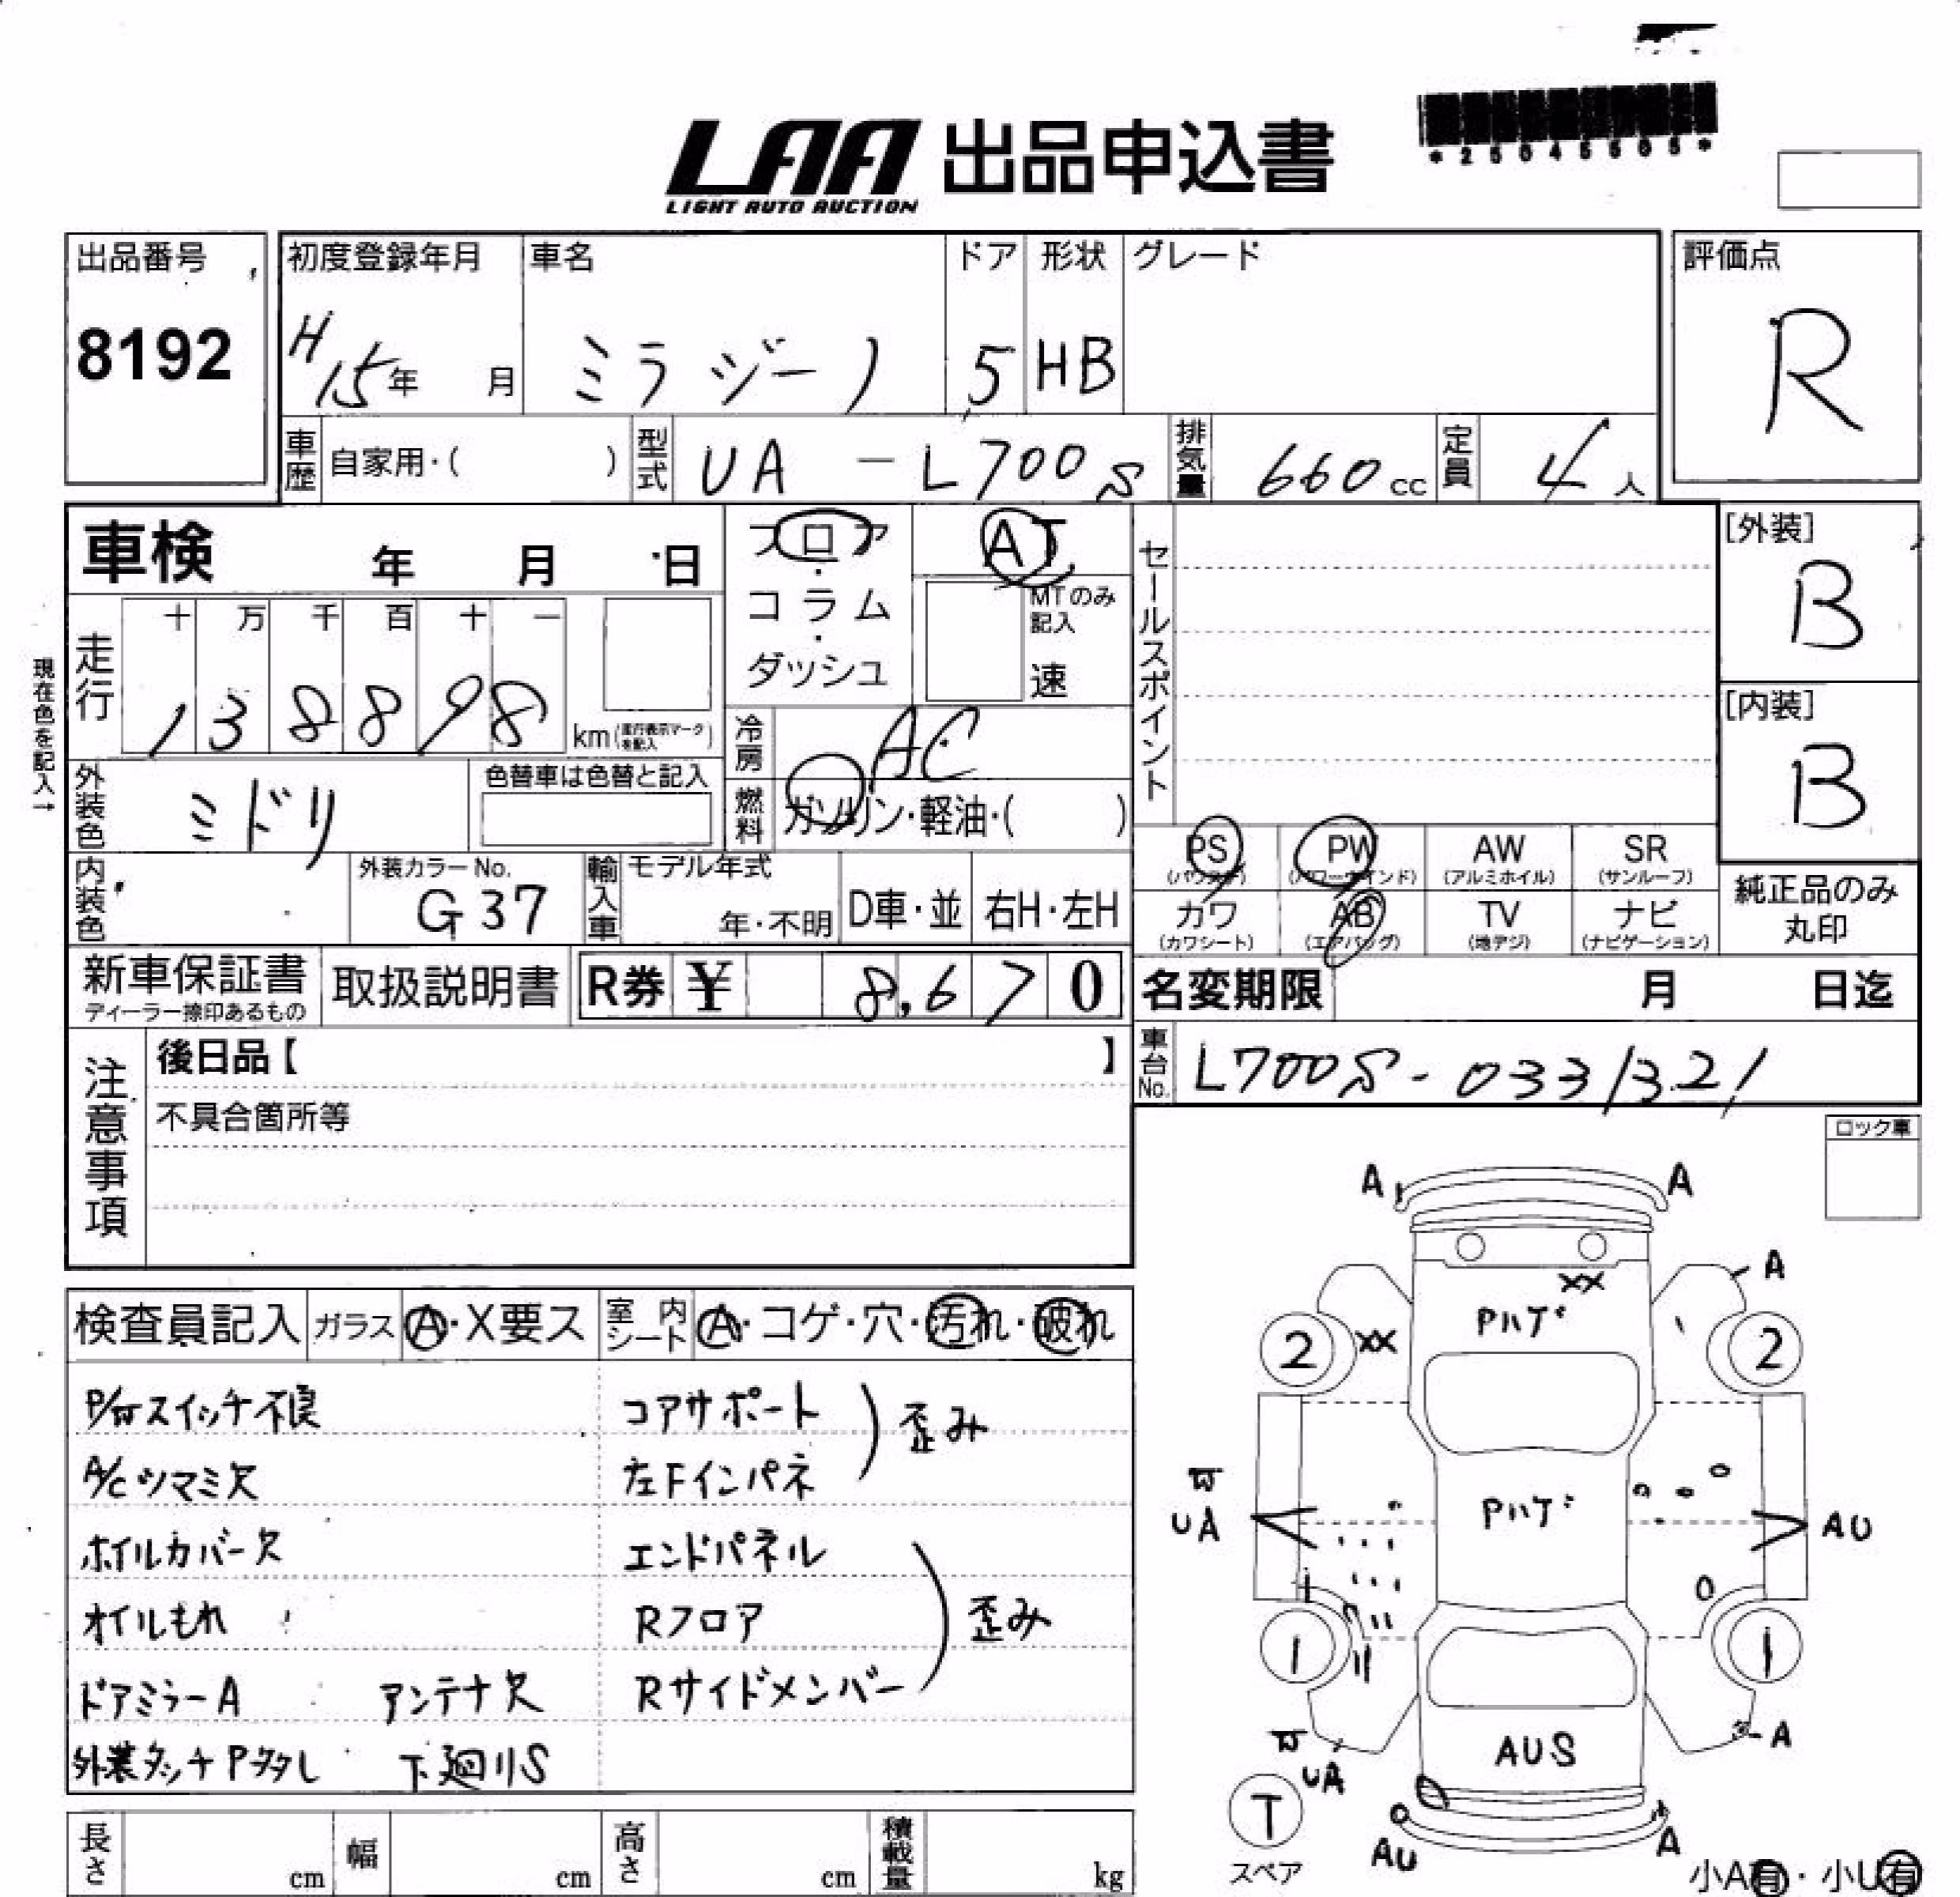 LAA 出品申込書
LIGHT AUTO AUCTION
*25045505*
出品番号 初度登録年月 車名 ドア 形状 グレード 評価点
8192 H15年 月 ミラジーノ 5 HB R
車歴 自家用・( ) 型式 UA-L700S 排気量 660cc 定員 4人
車検 年 月 日 フロア・コラム・ダッシュ AT セールスポイント [外装] B
MTのみ記入 速
現在色を記入→
走行 十 万 千 百 十 一
138898 km(走行表示マークを記入) 冷房 AC [内装] B
外装色 ミドリ 色替車は色替と記入 燃料 ガソリン・軽油・( )
PS (パワステ) PW (パワーウインド) AW (アルミホイル) SR (サンルーフ)
内装色 外装カラーNo. G37 輸入車 モデル年式 年・不明 D車・並 右H・左H
カワ (カワシート) AB (エアバッグ) TV (地デジ) ナビ (ナビゲーション) 純正品のみ丸印
新車保証書 ディーラー捺印あるもの 取扱説明書 R券 ¥ 8,670 名変期限 月 日迄
注意事項 後日品【 】 車台No. L700S-0331321
不具合箇所等
ロック車
検査員記入 ガラス A・X要ス 室内シート A・コゲ・穴・汚れ・破れ
P/Wスイッチ不良 コアサポート
歪み
A/Cツマミ欠 左Fインパネ
ホイルカバー欠 エンドパネル
オイルもれ Rフロア 歪み
ドアミラーA アンテナ欠 Rサイドメンバー
外装タッチPタタし 下廻りS
A A
XX A
Pハゲ
2 XX 2
W
UA Pハゲ AU
1 1
W
UA AUS A
T
スペア
AU A
小A有・小U有
長さ cm 幅 cm 高さ cm 積載量 kg